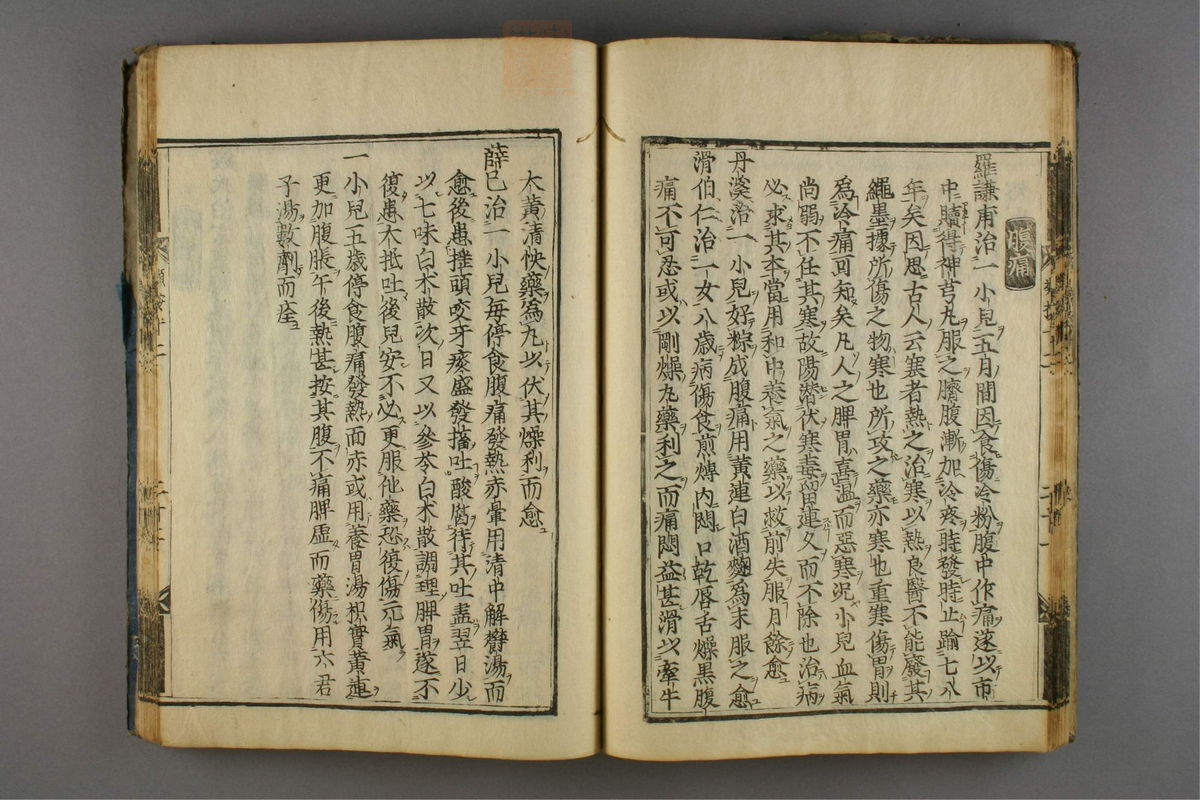 腹痛
羅謙甫治一小兒五月間因食傷冷粉腹中作痛遂以市
中贖得神芎丸服之臍腹漸加冷疼時發時止踰七八
年矣因思古人云寒者熱之治寒以熱良醫不能廢其
繩墨據所傷之物寒也所攻之藥亦寒也重寒傷胃則
爲冷痛可知矣凡人之脾胃喜温而惡寒况小兒血氣
尚弱不任其寒故陽潜伏寒毒留連久而不除也治病
必求其本當用和中養氣之藥以救前失服月餘愈
丹溪治一小兒好粽成腹痛用黄連白酒麯爲末服之愈
滑伯仁治一女八歳病傷食煎煿内悶口乾唇舌燥黒腹
痛不可忍或以剛燥丸藥利之而痛悶益甚滑以牽牛
大黄清快藥爲丸以伏其燥利而愈
薛已治一小兒毎停食腹痛發熱赤暈用清中解欝湯而
愈後患摇頭咬牙痰盛發搐吐酸腐待其吐盡翌日少
以七味白朮散次日又以參苓白朮散調理脾胃遂不
復患大抵吐後兒安不必更服他藥恐復傷元氣
一小兒五歳停食腹痛發熱面赤或用養胃湯枳實黄連
更加腹脹午後熱甚按其腹不痛脾虚而藥傷用六君
子湯數劑而痊